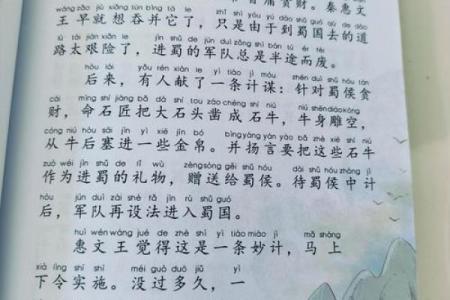 贪财。秦惠文
wáng zǎo jiù xiǎng tūn bìng tā le zhǐ shì yóu yú dào shǔ guó qù de dào
王早就想吞并它了，只是由于到蜀国去的道
lù tài jiān xiǎn le jìn shǔ de jūn duì zǒng shì bàn tú ér fèi
路太艰险了，进蜀的军队总是半途而废。
hòu lái yǒu rén xiàn le yì tiáo jì móu zhēn duì shǔ hóu tān
后来，有人献了一条计谋：针对蜀侯贪
cái mìng shí jiàng bǎ dà shí tou záo chéng shí niú niú shēn diāo kōng
财，命石匠把大石头凿成石牛，牛身雕空，
cóng niú hòu sāi jìn yì xiē jīn bó bìng yáng yán yào bǎ zhè xiē shí niú
从牛后塞进一些金帛。并扬言要把这些石牛
zuò wéi jìn shǔ de lǐ wù zèng sòng gěi shǔ hóu dài shǔ hóu zhòng jì
作为进蜀的礼物，赠送给蜀侯。待蜀侯中计
hòu jūn duì zài shè fǎ jìn rù shǔ guó
后，军队再设法进入蜀国。
huì wén wáng jué de zhè shì yì tiáo miào jì mǎ shàng
惠文王觉得这是一条妙计，马上
xià lìng shí shī méi guò duō jiǔ yì
下令实施。没过多久，一